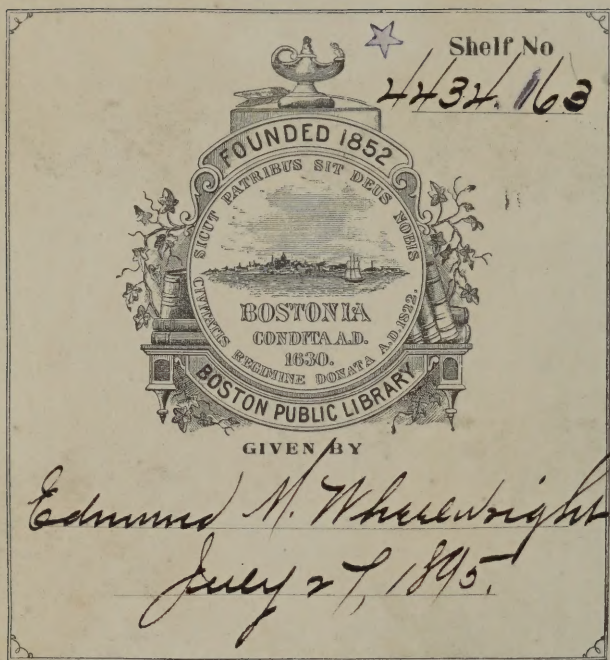 Shelf No
4434.163
FOUNDED 1852
SICUT PATRIBUS SIT DEUS NOBIS
BOSTONIA
CONDITA A.D.
1630.
CIVITATIS REGIMINE DONATA A.D. 1822.
BOSTON PUBLIC LIBRARY
GIVEN BY
Edmund M. Wheelwright
July 27, 1895.